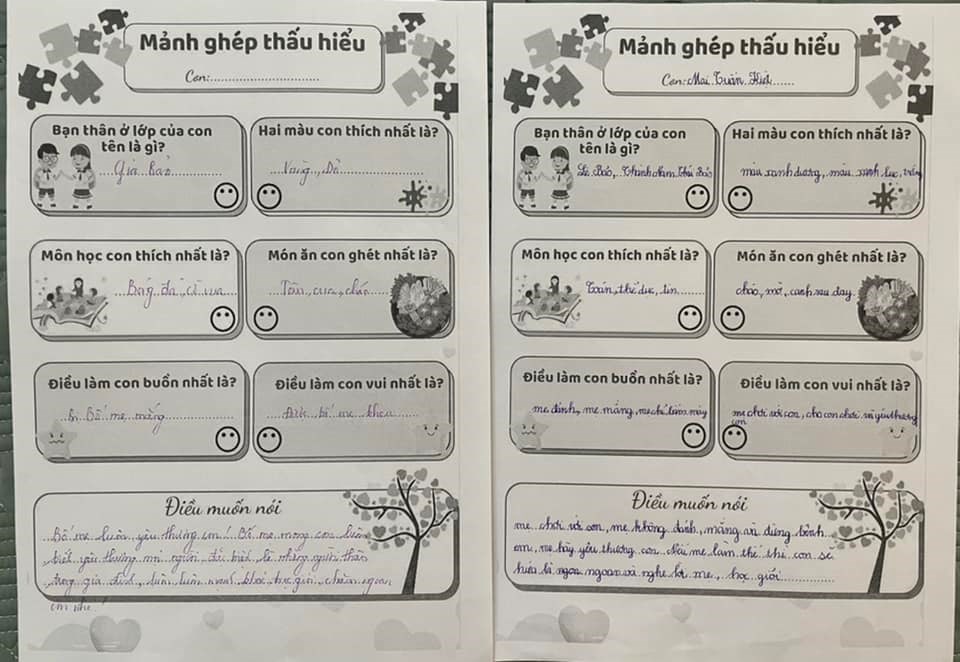 Mảnh ghép thấu hiểu
Con:
Bạn thân ở lớp của con
tên là gì?
Gia Bảo
Hai màu con thích nhất là?
Vàng, Đỏ
Môn học con thích nhất là?
Bóng đá, cờ vua
Món ăn con ghét nhất là?
Tôm, cua, cháo
Điều làm con buồn nhất là?
Bị Bố mẹ mắng
Điều làm con vui nhất là?
Được bố mẹ khen
Điều muốn nói
Bố mẹ luôn yêu thương em! Bố mẹ mong con luôn
biết yêu thương mọi người, đặc biệt là những người thân
trong gia đình, luôn luôn mạnh khỏe, học giỏi, chăm ngoan
con nhé!
Mảnh ghép thấu hiểu
Con: Mai Tuấn Kiệt
Bạn thân ở lớp của con
tên là gì?
Lê Bảo, Thành Nam, Bảo
Hai màu con thích nhất là?
màu xanh dương, màu xanh lục, trắng
Môn học con thích nhất là?
Toán, thể dục, tin
Món ăn con ghét nhất là?
cháo, mỡ, canh rau đay
Điều làm con buồn nhất là?
mẹ đánh, mẹ mắng, mẹ
Điều làm con vui nhất là?
mẹ chơi với con, cho con chơi và yêu thương
con
Điều muốn nói
mẹ chơi với con, mẹ không đánh, mắng và đừng bênh
em, mẹ hãy yêu thương con. Nếu mẹ làm thế thì con sẽ
hứa là ngoan ngoan và nghe lời mẹ, học giỏi